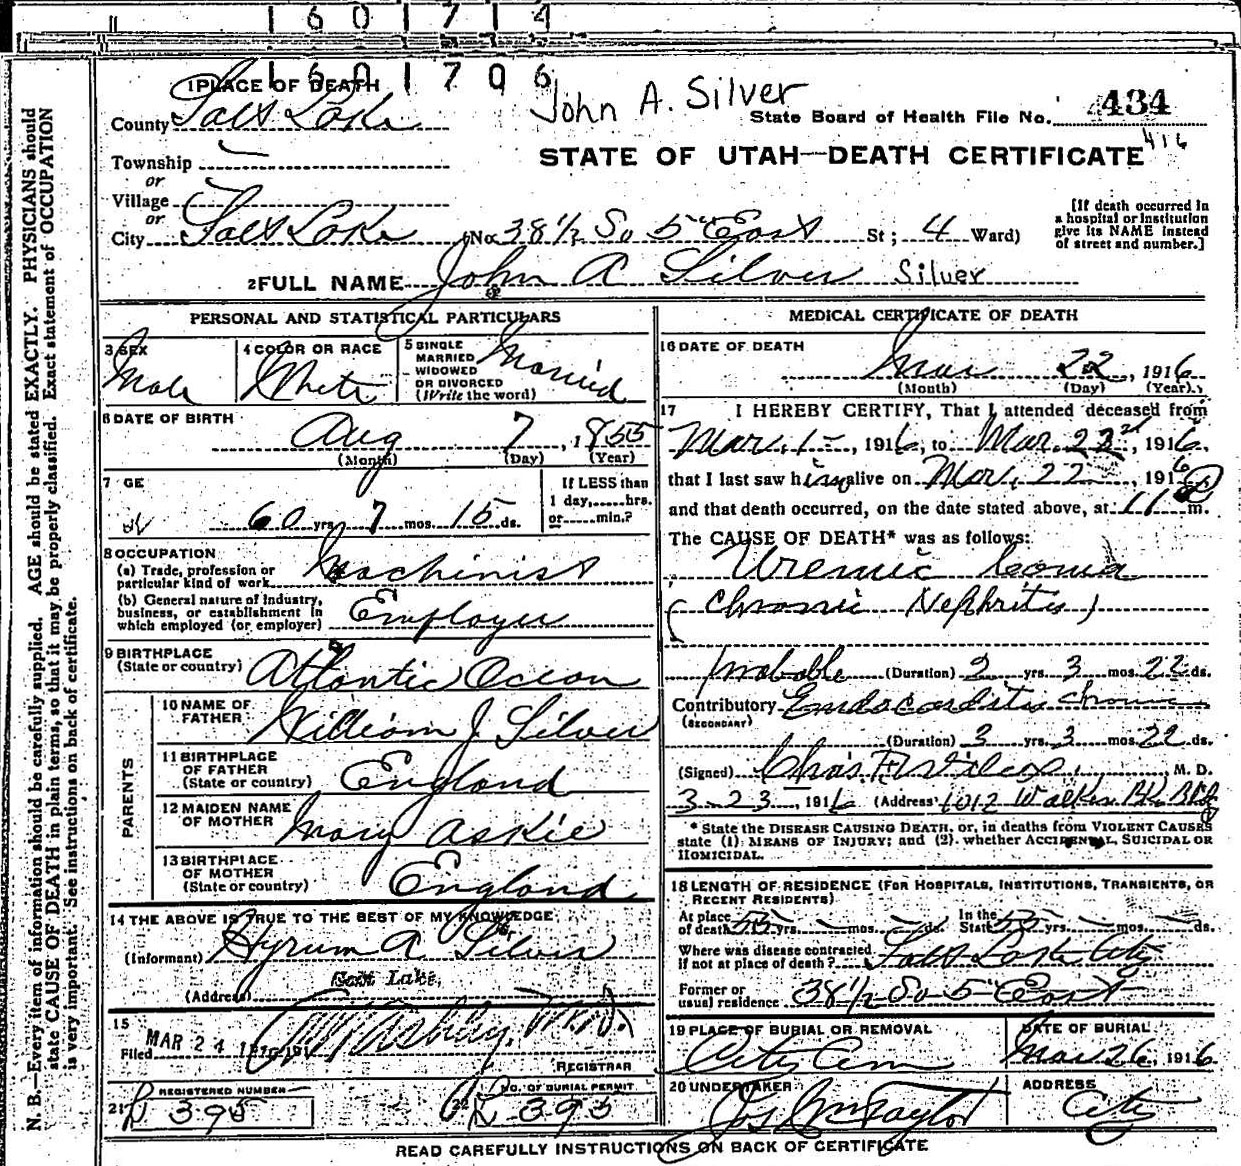 1 6 0 1 7 1 4
1 6 0 1 7 0 6
1 PLACE OF DEATH
John A. Silver
County Salt Lake
State Board of Health File No. 434
416
Township —
STATE OF UTAH—DEATH CERTIFICATE
or
Village
or
City Salt Lake (No. 38 1/2 So 5" East St; 4 Ward)
[If death occurred in a hospital or institution give its NAME instead of street and number.]
2 FULL NAME John A Silver Silver
PERSONAL AND STATISTICAL PARTICULARS
3 SEX Male
4 COLOR OR RACE White
5 SINGLE MARRIED WIDOWED OR DIVORCED (Write the word) Married
6 DATE OF BIRTH Aug 7, 1855
(Month) (Day) (Year)
7 GE 60 yrs. 7 mos. 15 ds.
If LESS than 1 day,......hrs. or......min.?
8 OCCUPATION
(a) Trade, profession or particular kind of work Machinist
(b) General nature of industry, business, or establishment in which employed (or employer) Employer
9 BIRTHPLACE (State or country) Atlantic Ocean
PARENTS
10 NAME OF FATHER William J. Silver
11 BIRTHPLACE OF FATHER (State or country) England
12 MAIDEN NAME OF MOTHER Mary Askie
13 BIRTHPLACE OF MOTHER (State or country) England
14 THE ABOVE IS TRUE TO THE BEST OF MY KNOWLEDGE
(Informant) Hyrum A Silver
(Address) Salt Lake,
15
Filed MAR 24 1916 191 T. W. Ashley, M.D.
REGISTRAR
21 REGISTERED NUMBER R 395
22 NO. OF BURIAL PERMIT R 395
MEDICAL CERTIFICATE OF DEATH
16 DATE OF DEATH
Mar 22, 1916
(Month) (Day) (Year)
17 I HEREBY CERTIFY, That I attended deceased from
Mar. 1 —, 1916, to Mar. 22d, 1916,
that I last saw him alive on Mar. 22, 1916
and that death occurred, on the date stated above, at 11 P m.
The CAUSE OF DEATH* was as follows:
Uremic Coma
(Chronic Nephritis)
probable (Duration) 3 yrs. 3 mos. 22 ds.
Contributory Endocarditis chronic
(SECONDARY)
(Duration) 3 yrs. 3 mos. 22 ds.
(Signed) Chas. F. Wilcox, M. D.
3-23, 1916 (Address) 1012 Walker Bk. Bldg
* State the DISEASE CAUSING DEATH, or, in deaths from VIOLENT CAUSES
state (1) MEANS OF INJURY; and (2) whether ACCIDENTAL, SUICIDAL OR
HOMICIDAL.
18 LENGTH OF RESIDENCE (FOR HOSPITALS, INSTITUTIONS, TRANSIENTS, OR
RECENT RESIDENTS)
At place of death 55 yrs. — mos. — ds. In the State 55 yrs. — mos. — ds.
Where was disease contracted if not at place of death? Salt Lake City
Former or usual residence 38 1/2 So 5" East
19 PLACE OF BURIAL OR REMOVAL City Cem
DATE OF BURIAL Mar 26, 1916
20 UNDERTAKER Jos Wm Taylor
ADDRESS City
READ CAREFULLY INSTRUCTIONS ON BACK OF CERTIFICATE
N. B.—Every item of information should be carefully supplied. AGE should be stated EXACTLY. PHYSICIANS should
state CAUSE OF DEATH in plain terms, so that it may be properly classified. Exact statement of OCCUPATION
is very important. See instructions on back of certificate.